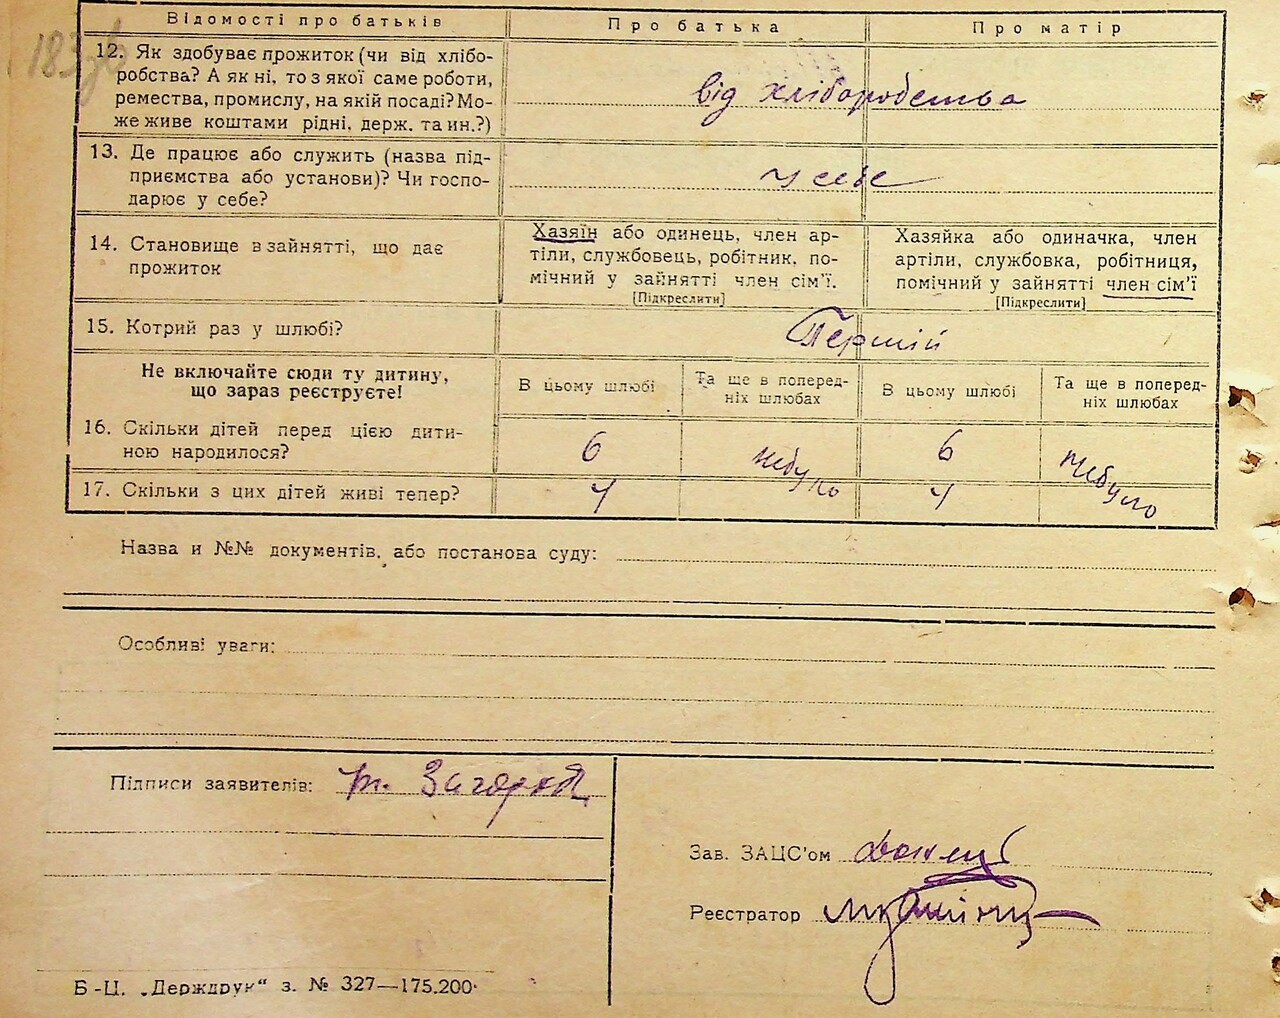 183зв
Відомості про батьків
Про батька
Про матір
12. Як здобуває прожиток (чи від хлібо-
робства? А як ні, то з якої саме роботи,
ремества, промислу, на якій посаді? Мо-
же живе коштами рідні, держ. та ин.?)
від хліборобства
13. Де працює або служить (назва під-
приємства або установи)? Чи госпо-
дарює у себе?
у себе
14. Становище в зайнятті, що дає
прожиток
Хазяїн або одинець, член ар-
тіли, службовець, робітник, по-
мічний у зайнятті член сім'ї.
[Підкреслити]
Хазяйка або одиначка, член
артіли, службовка, робітниця,
помічний у зайнятті член сім'ї
[Підкреслити]
15. Котрий раз у шлюбі?
Перший
Не включайте сюди ту дитину,
що зараз реєструєте!
В цьому шлюбі
Та ще в поперед-
ніх шлюбах
В цьому шлюбі
Та ще в поперед-
ніх шлюбах
16. Скільки дітей перед цією дити-
ною народилося?
6
небуло
6
небуло
17. Скільки з цих дітей живі тепер?
4
4
Назва и №№ документів, або постанова суду:
Особливі уваги:
Підписи заявителів:
Зав. ЗАЦС'ом
Реєстратор
Б-Ц. „Держдрук“ з. № 327—175.200